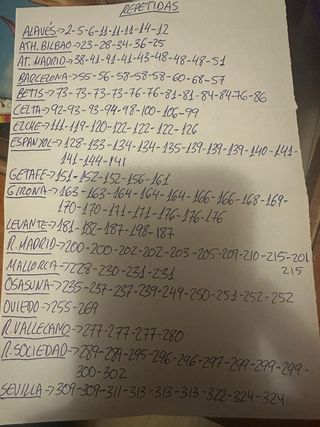 REPETIDAS
ALAVÉS→2-5-6-11-11-11-14-12
ATH. BILBAO→23-28-34-36-25
AT. MADRID→38-41-41-41-43-48-48-48-51
BARCELONA→55-56-58-58-58-60-68-57
BETIS→73-73-73-73-76-76-81-81-84-84-76-86
CELTA→92-93-93-94-98-100-106-99
ELCHE→111-119-120-122-122-122-126
ESPANYOL→128-133-134-134-135-139-139-139-140-141-
141-144-141
GETAFE→151-152-152-156-161
GIRONA→163-163-164-164-164-166-166-168-169-
170-170-171-171-176-176-176
LEVANTE→181-182-187-198-187
R. MADRID→200-200-202-202-203-205-209-210-215-201
215
MALLORCA→228-230-231-231
OSASUNA→235-237-237-239-249-250-251-252-252
OVIEDO→255-269
R. VALLECANO→277-277-277-280
R. SOCIEDAD→289-289-295-296-296-297-299-299-299-
300-302
SEVILLA→309-309-311-313-313-313-322-324-324